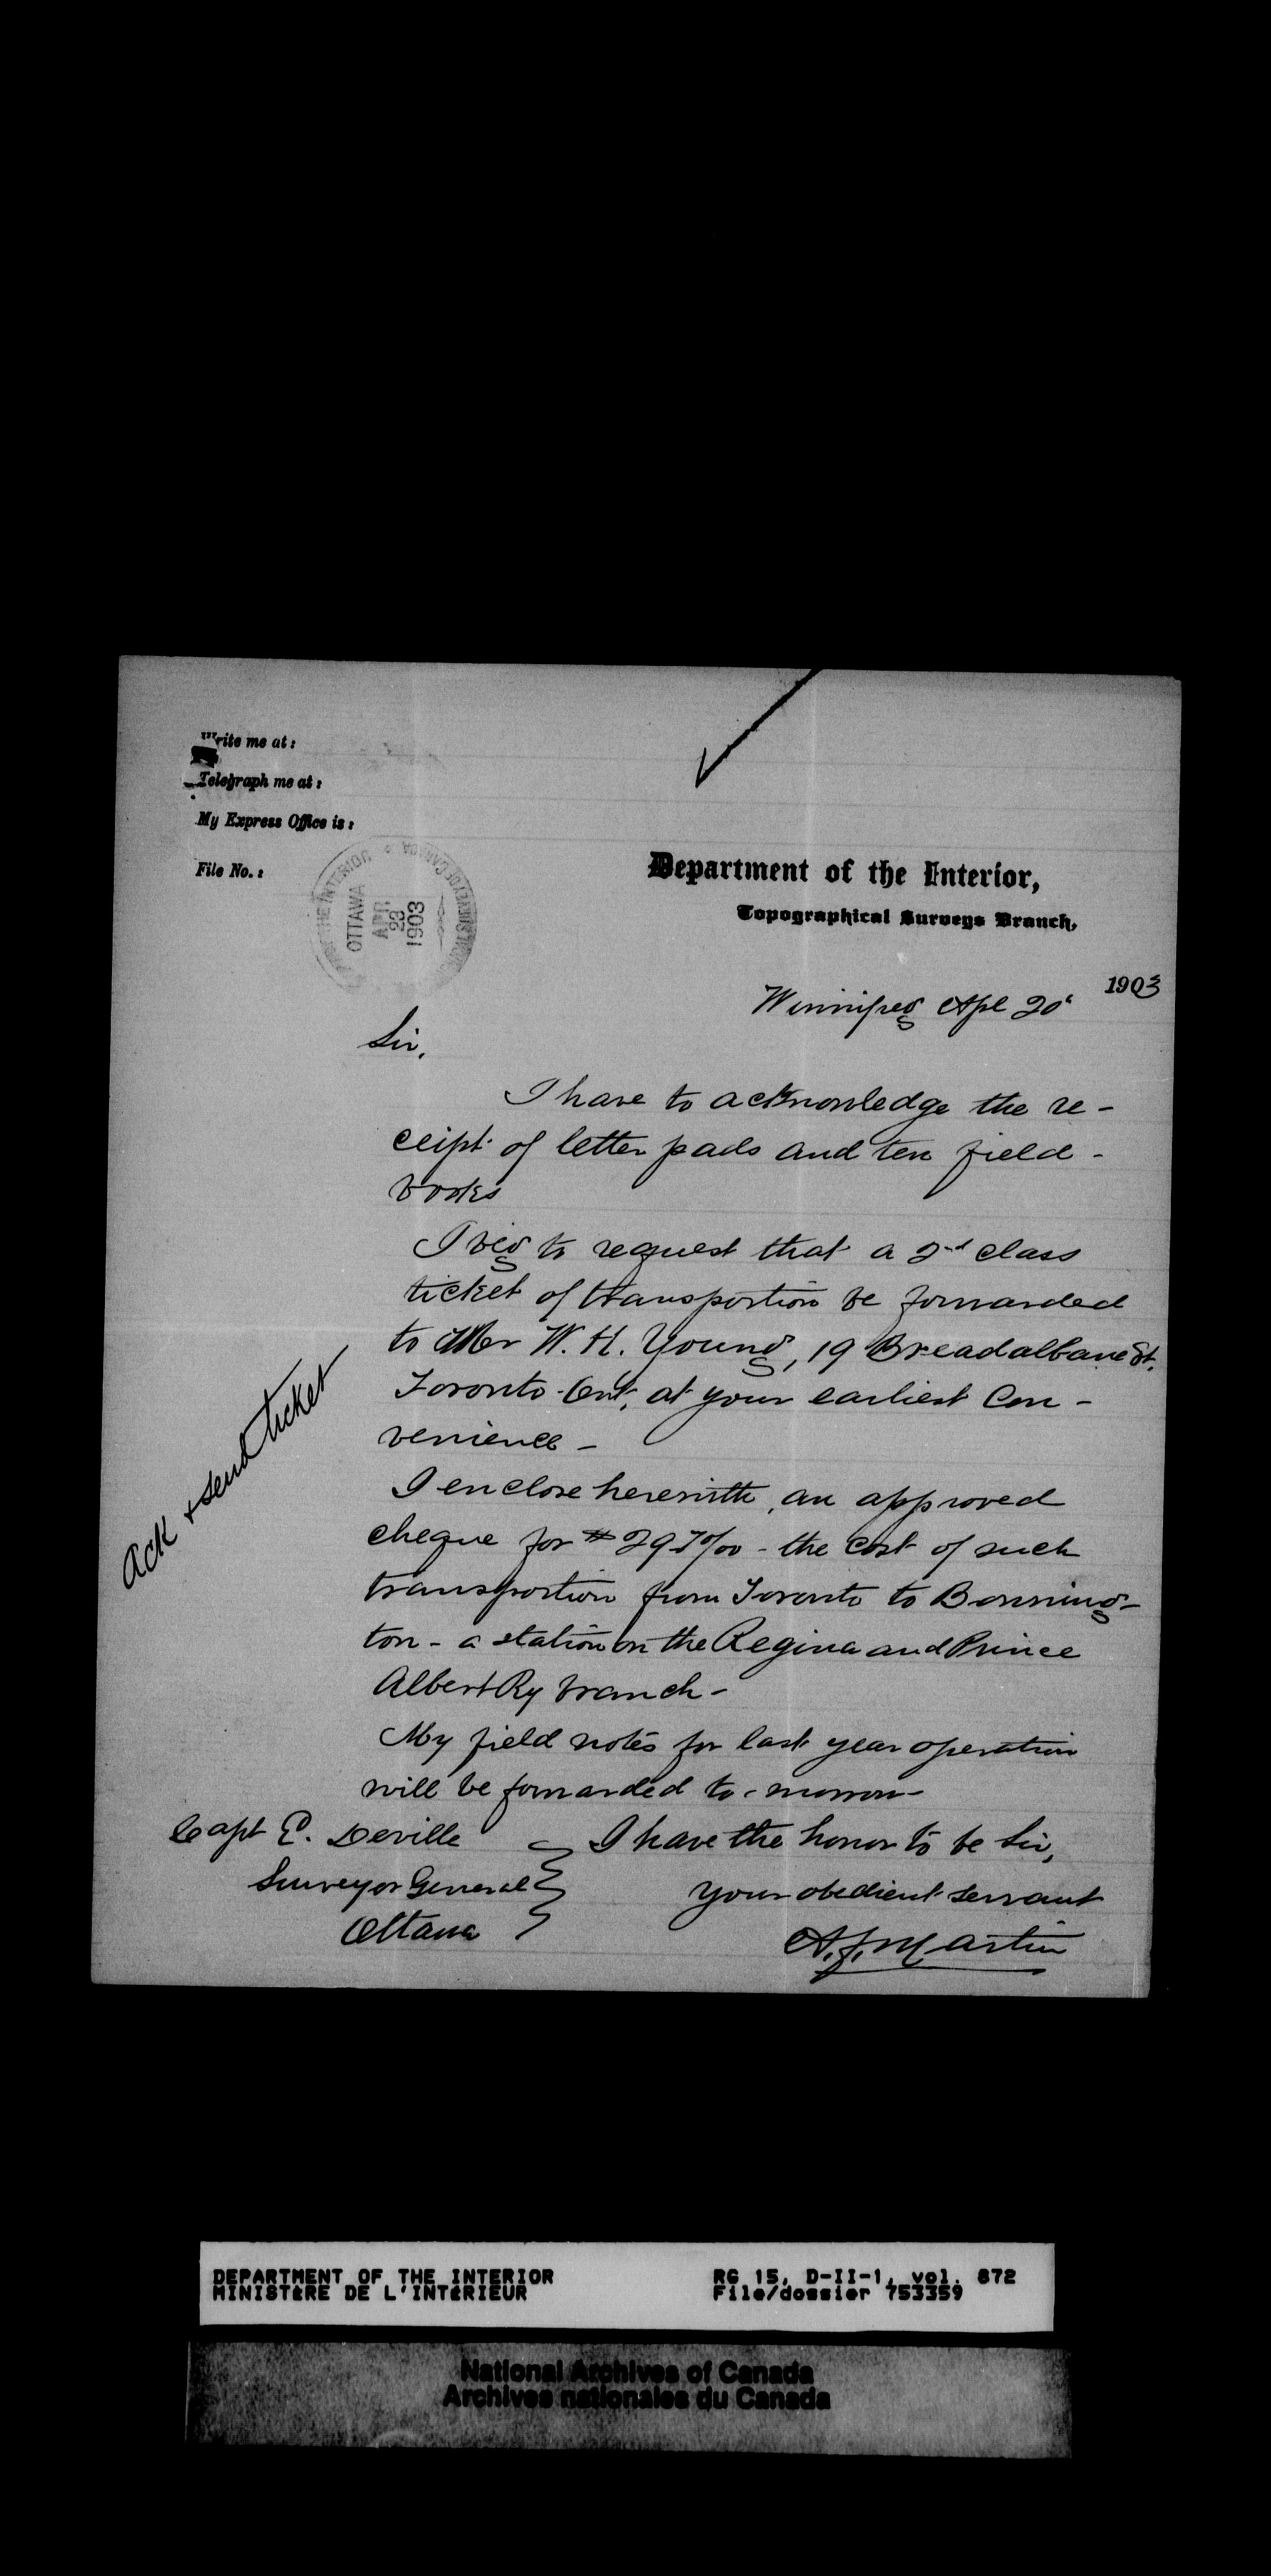 Write me at:
Telegraph me at:
My Express Office is:
File No.:
THE INTERIOR
OTTAWA
APR
23
1903
Department of the Interior,
Topographical Surveys Branch,
Winnipeg Apl 20' 1903
Sir,
I have to acknowledge the re-
ceipt of letter pads and ten field-
books
I beg to request that a 2nd class
ticket of transportion be forwarded
to Mr W. H. Young, 19 Breadalbane St.
Toronto Ont, at your earliest con-
venience -
I enclose herewith, an approved
cheque for $ 29 70/00 - the cost of such
transportion from Toronto to Bonning-
ton - a station on the Regina and Prince
Albert Ry branch -
My field notes for last year operation
will be forwarded to-morrow-
I have the honor to be Sir,
your obedient servant
A. J. Martin
Capt E. Deville
Surveyor General
Ottawa
Ack & send ticket
DEPARTMENT OF THE INTERIOR
MINISTÈRE DE L'INTÉRIEUR
RG 15, D-II-1, vol. 872
File/dossier 753359
National Archives of Canada
Archives nationales du Canada